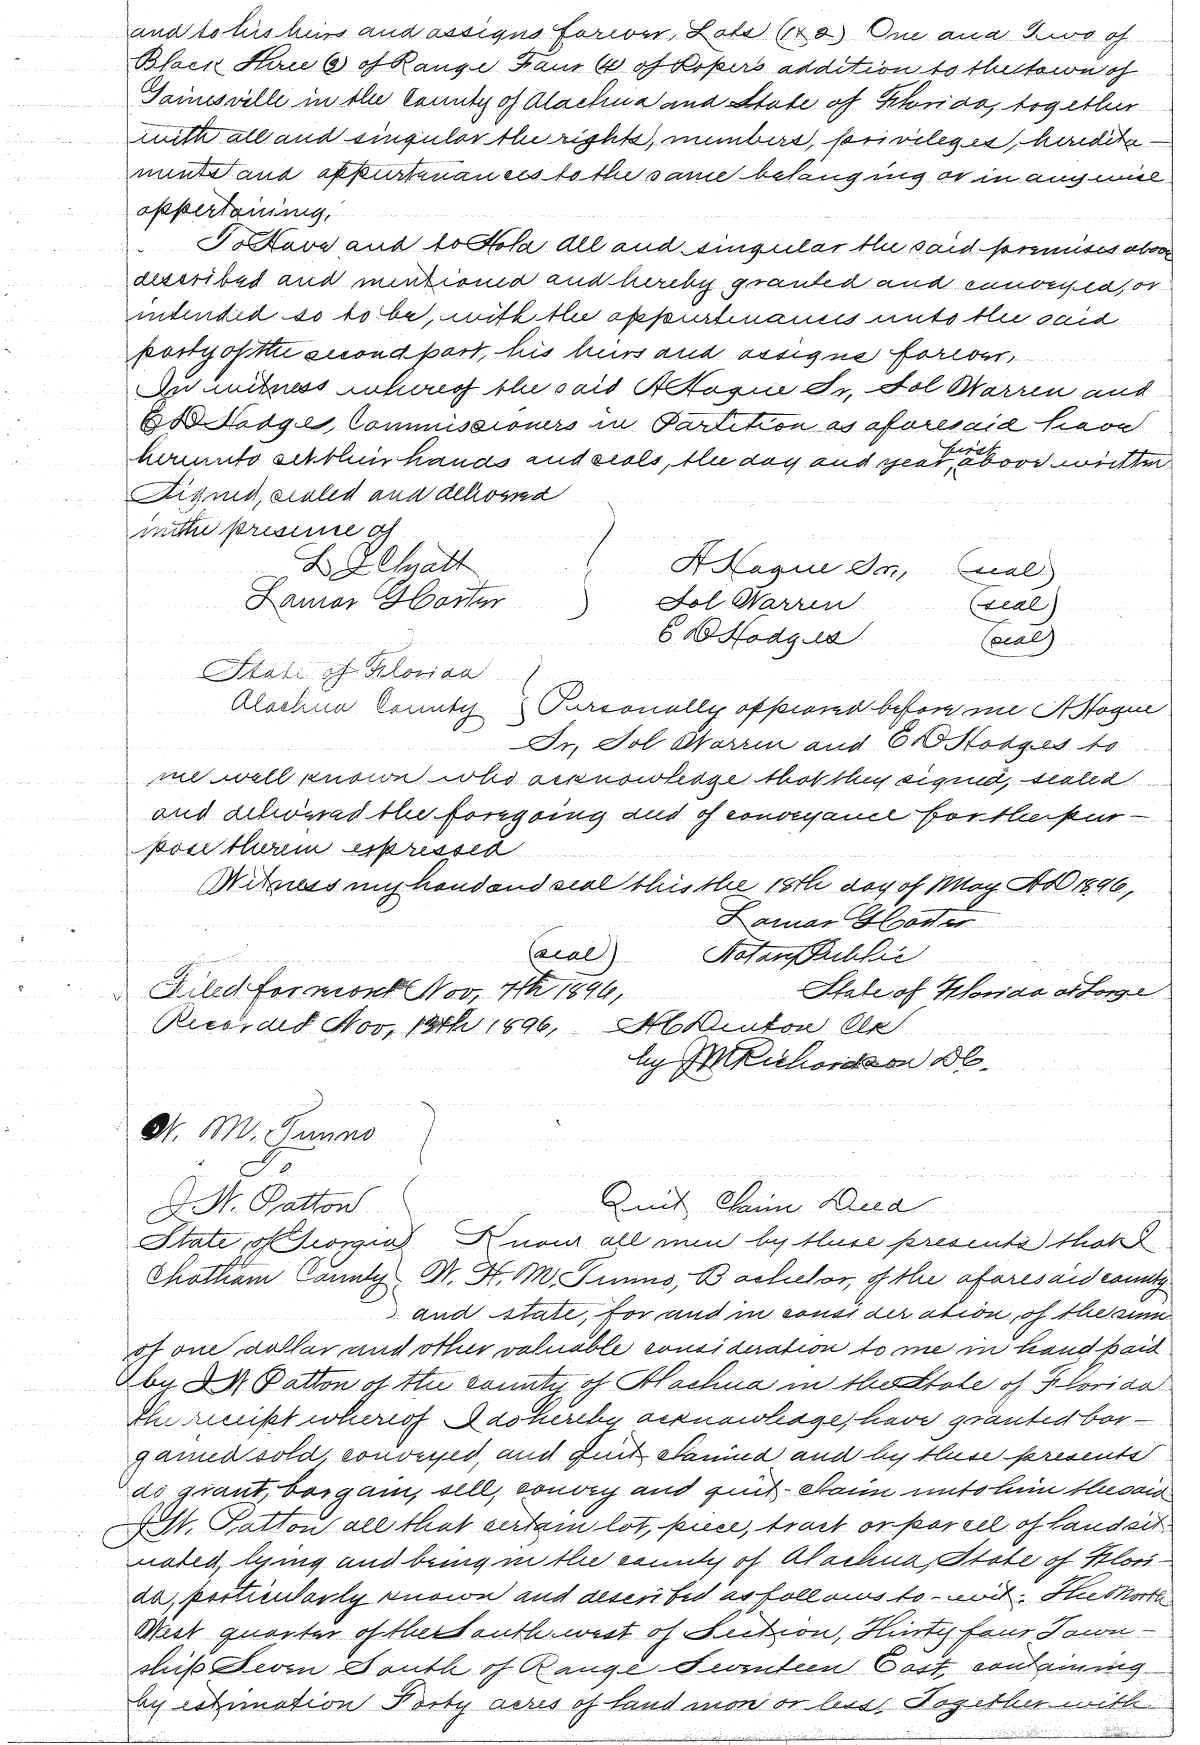 and to his heirs and assigns forever, Lots (1 & 2) One and Two of
Block Three (3) of Range Four (4) of Roper's addition to the town of
Gainesville in the County of Alachua and State of Florida, together
with all and singular the rights, members, privileges, heredita-
ments and appurtenances to the same belonging or in anywise
appertaining.
To Have and to Hold all and singular the said premises above
described and mentioned and hereby granted and conveyed, or
intended so to be, with the appurtenances unto the said
party of the second part, his heirs and assigns forever.
In witness whereof the said A Hague Sr, Sol Warren and
E D Hodges, Commissioners in Partition as aforesaid have
hereunto set their hands and seals, the day and year first above written
Signed, sealed and delivered
in the presence of
A Hague Sr, (seal)
Lamar G Carter Sol Warren (seal)
E D Hodges (seal)
State of Florida
Alachua County Personally appeared before me A Hague
Sr, Sol Warren and E D Hodges to
me well known who acknowledge that they signed, sealed
and delivered the foregoing deed of conveyance for the pur-
pose therein expressed
Witness my hand and seal this the 18th day of May AD 1896,
Lamar G Carter
(seal) Notary Public
Filed for record Nov, 7th 1896, State of Florida at Large
Recorded Nov, 13th 1896, H C Denton Clk
by J M Richardson DC.
W. M. Tunno
To
J W. Patton Quit Claim Deed
State of Georgia Know all men by these presents that I
Chatham County W. H. M. Tunno, Bachelor, of the aforesaid county
and state, for and in consideration, of the sum
of one dollar and other valuable consideration to me in hand paid
by J W Patton of the county of Alachua in the State of Florida
the receipt whereof I do hereby acknowledge, have granted bar-
gained sold, conveyed, and quit claimed and by these presents
do grant, bargain, sell, convey and quit-claim unto him the said
J W. Patton all that certain lot, piece, tract or parcel of land sit
uated, lying and being in the county of Alachua, State of Flori-
da, particularly known and described as follows to-wit: The North
West quarter of the South west of Section, Thirty four Town-
ship Seven South of Range Seventeen East, containing
by estimation Forty acres of land more or less, Together with